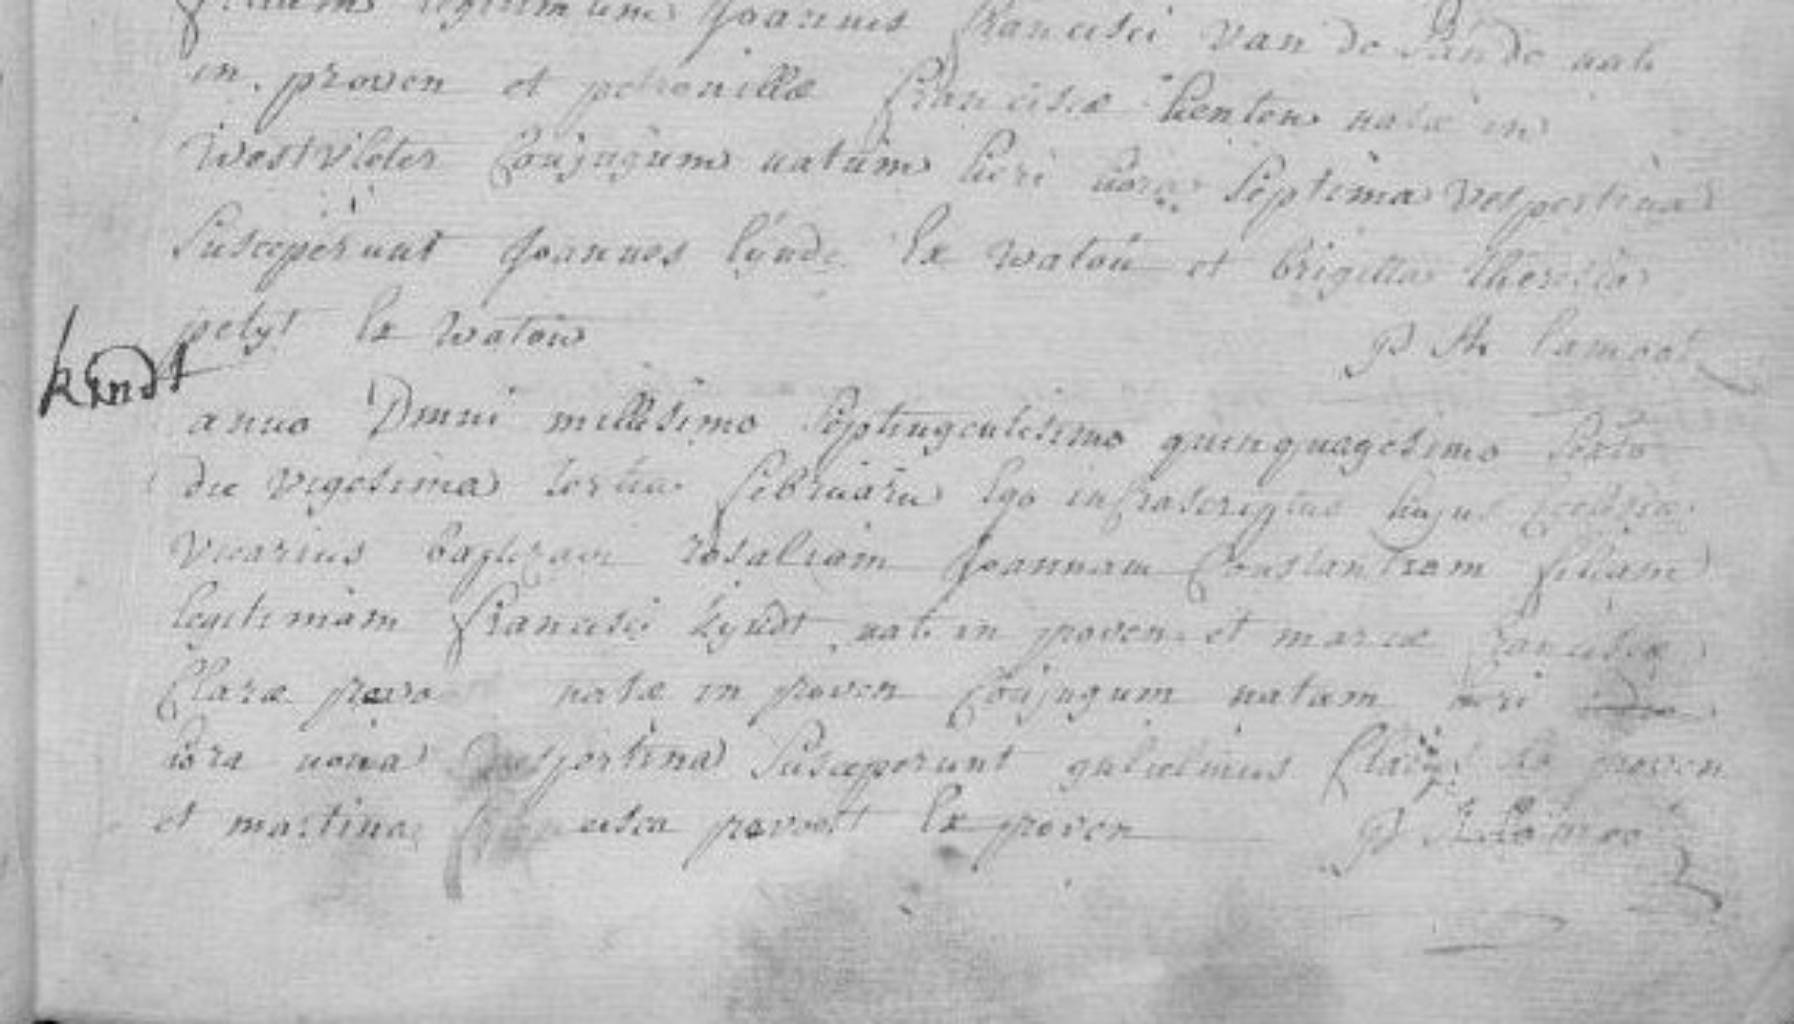 filium legitimum Joannis Francisci van de Sande nati
in proven et petronillæ Franciscæ Kenton natæ in
Westvleter Conjugum natum heri hora Septima Vespertina
Susceperunt Joannes lynde Ex watou et brigitta theresia
pelyt Ex watou P Lamoot
kindt
anno Dmni millesimo Septingentesimo quinquagesimo Sexto
die vigesima tertia februarii Ego infrascriptus hujus Ecclesiæ
Vicarius baptizavi rosaliam Joannam Constantiam filiam
legitimam Francisci kyndt nati in proven et mariæ Franciscæ
Claræ natæ in proven Conjugum natam heri
hora nona Vespertina Susceperunt gulielmus Ex proven
et martina Francisca provoost Ex proven P Lamoo